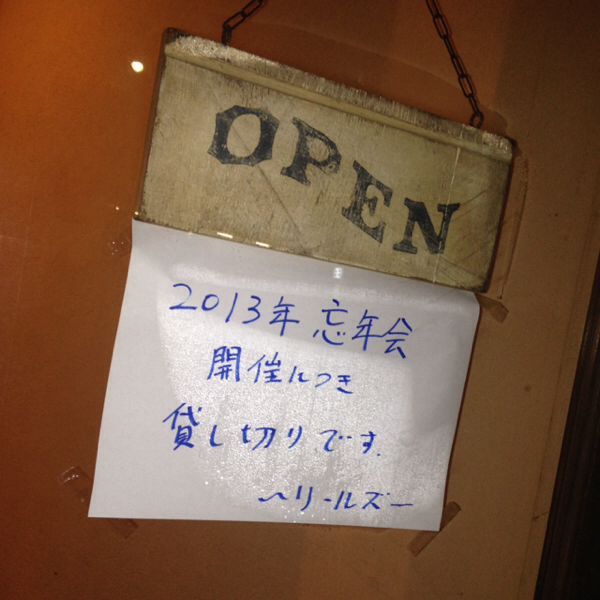 OPEN
2013年 忘年会
開催につき
貸し切りです.
〜リールズー